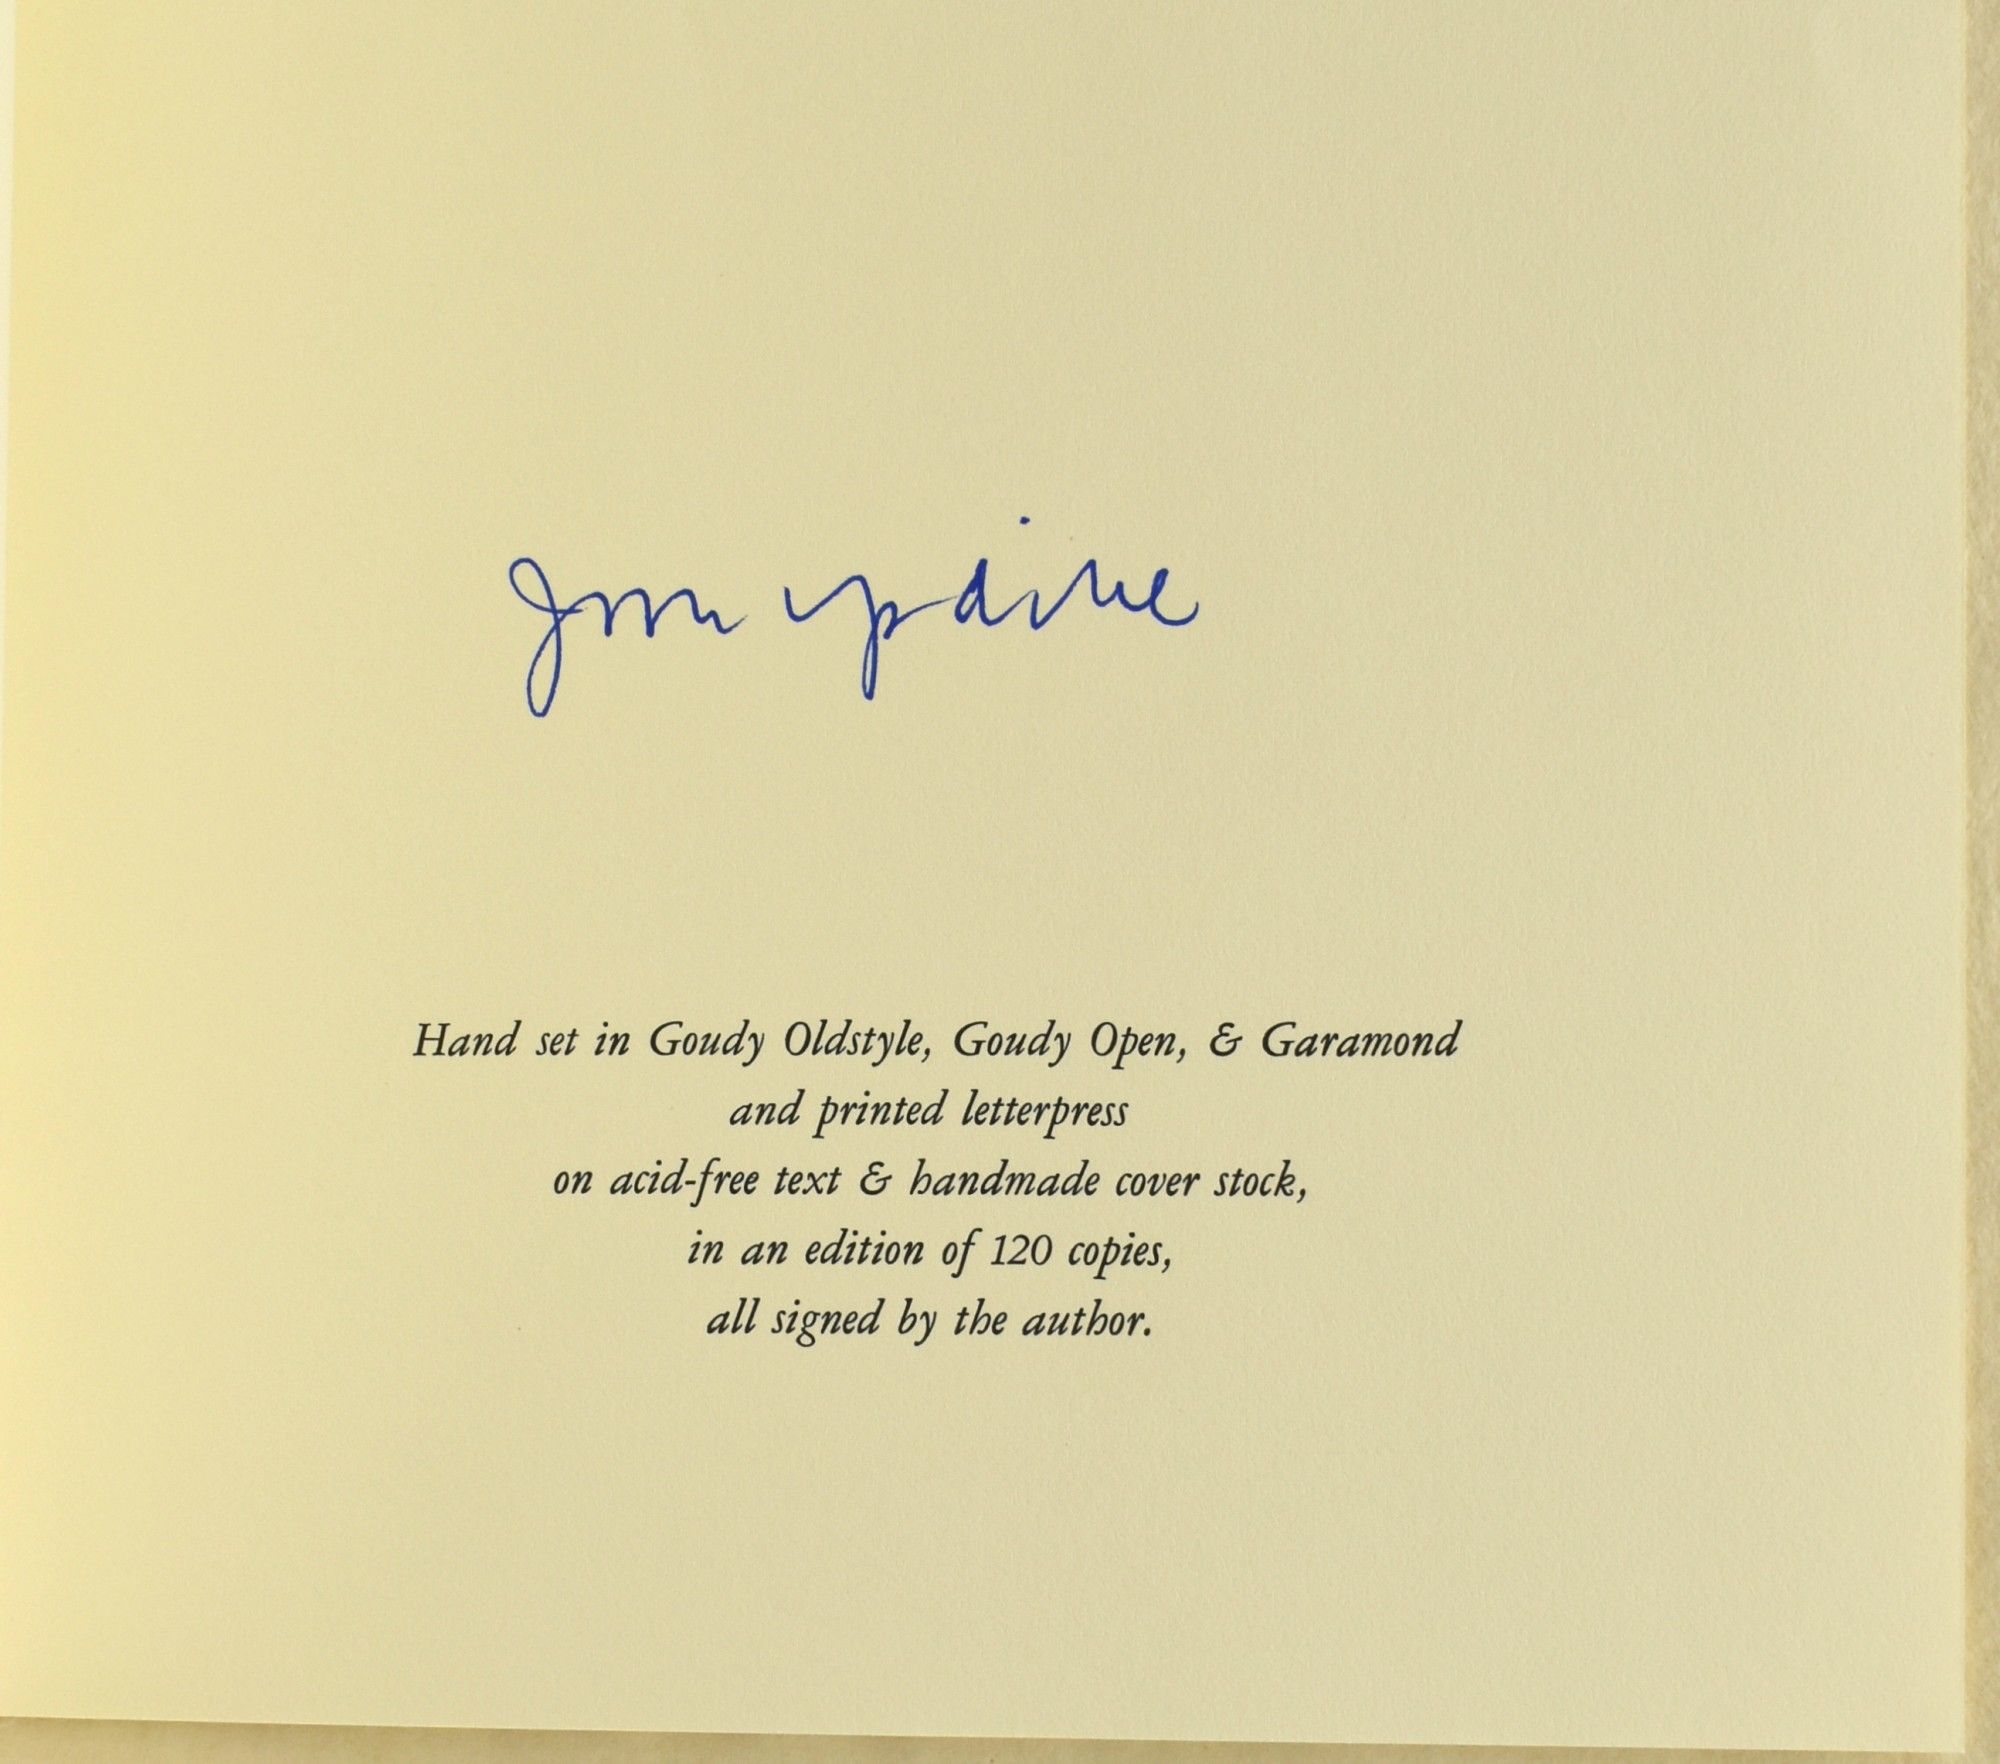 John Updike
Hand set in Goudy Oldstyle, Goudy Open, & Garamond
and printed letterpress
on acid-free text & handmade cover stock,
in an edition of 120 copies,
all signed by the author.